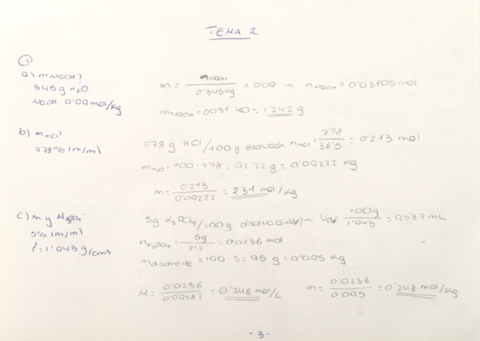 TEMA 2
①
a) m NaOH?
345g H2O
NaOH 0'09 mol/kg
m = nNaOH / 0'345kg = 0'09 → nNaOH = 0'03105 mol
mNaOH = 0'031·40 = 1'242 g
b) mHCl?
7'78% (m/m)
7'78 g HCl/100g disolución nHCl = 7'78 / 36'5 = 0'213 mol
mH2O = 100-7'78 = 92'22g = 0'09222 kg
m = 0'213 / 0'09222 = 2'31 mol/kg
c) m y M
5% (m/m)
ρ = 1'043 g/cm3
5g K3PO4/100g disolución 100g / 1'043 = 95'87 mL
nK3PO4 = 5g / 212 = 0'0236 mol
mdisolvente = 100-5 = 95 g = 0'095 Kg
M = 0'0236 / 0'09587 = 0'246 mol/L
m = 0'0236 / 0'095 = 0'248 mol/Kg
-3-